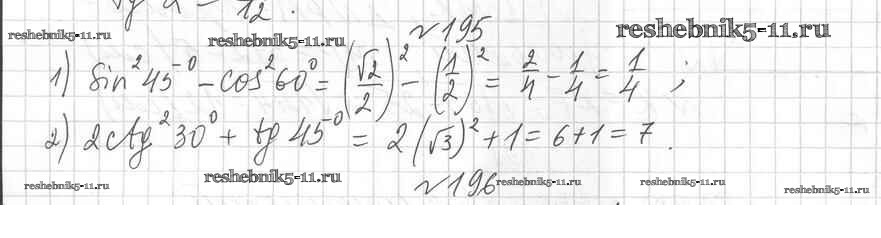 tg α = 12.
№195
reshebnik5-11.ru reshebnik5-11.ru reshebnik5-11.ru
1) sin²45° - cos²60° = (√2/2)² - (1/2)² = 2/4 - 1/4 = 1/4 ;
2) 2ctg²30° + tg 45° = 2(√3)² + 1 = 6+1 = 7.
reshebnik5-11.ru reshebnik5-11.ru reshebnik5-11.ru reshebnik5-11.ru reshebnik5-11.ru
№196